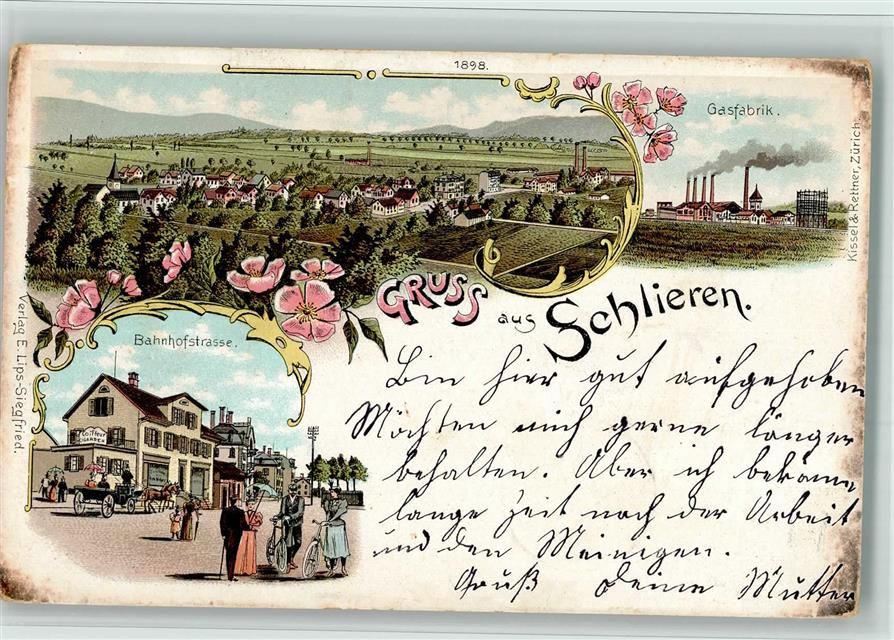 1898.
Gasfabrik.
Kissel & Kettner, Zürich.
GRUSS aus Schlieren.
Verlag E. Lips-Siegfried.
Bahnhofstrasse.
Coiffeur
CIGARREN
Bin hier gut aufgehoben
Möchten mich gerne länger
behalten. Aber ich bekäme
lange Zeit nach der Arbeit
und den Meinigen.
Gruß Deine Mutter